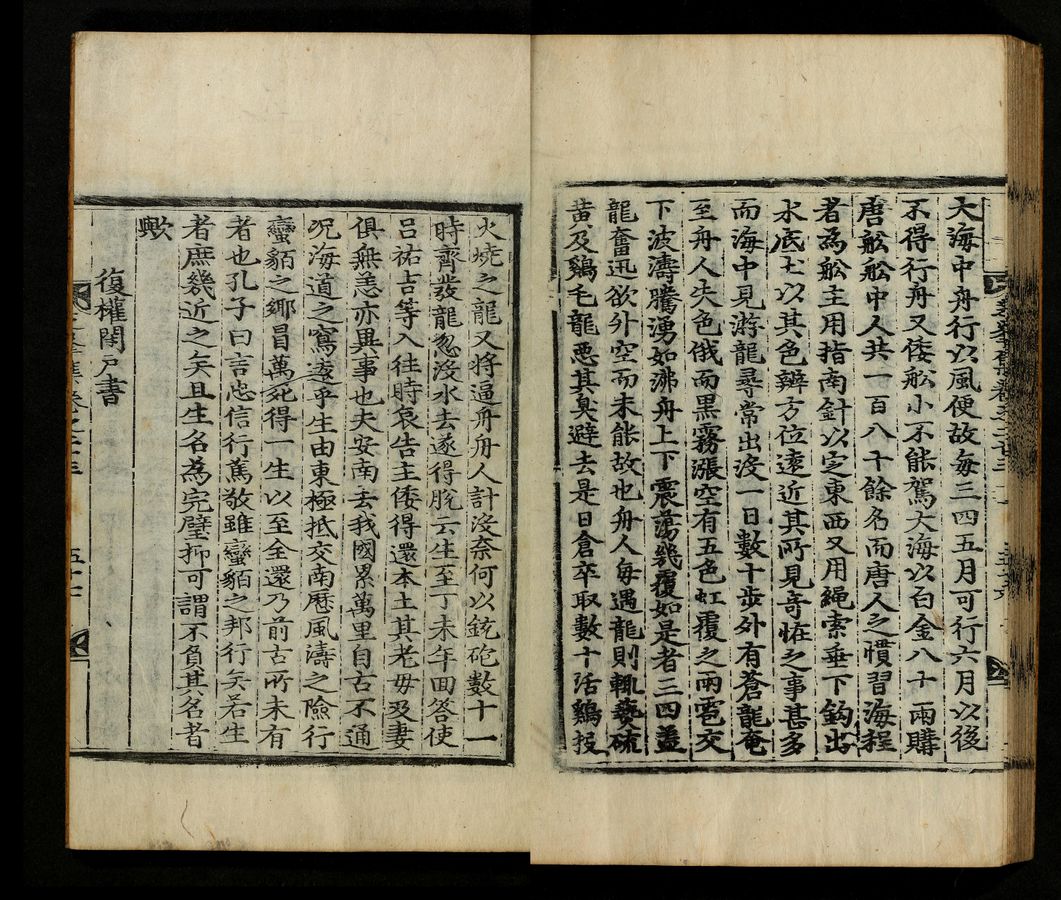 大海中舟行以風便故每三四五月可行六月以後
不得行舟又倭舩小不能駕大海以白金八十兩購
唐舩舩中人共一百八十餘名而唐人之慣習海程
者爲舩主用指南針以定東西又用繩索垂下鈎出
水底土以其色辨方位遠近其所見奇恠之事甚多
而海中見游龍尋常出沒一日數十步外有蒼龍奄
至舟人失色俄而黑霧漲空有五色虹覆之雨雹交
下波濤騰湧如沸舟上下震蕩幾覆如是者三四盖
龍奮迅欲升空而未能故也舟人每遇龍則輒爇硫
黃及鷄毛龍惡其臭避去是日倉卒取數十活鷄投
火燒之龍又將逼舟舟人計沒奈何以銃砲數十一
時齊發龍忽沒水去遂得脫云生至丁未年回答使
呂祐吉等入徃時哀告主倭得還本土其老母及妻
俱無恙亦異事也夫安南去我國累萬里自古不通
况海道之窵遠乎生由東極抵交南歷風濤之險行
蠻貊之鄕冒萬死得一生以至全還乃前古所未有
者也孔子曰言忠信行篤敬雖蠻貊之邦行矣若生
者庶幾近之矣且生名爲完璧抑可謂不負其名者
歟
復權閑戶書